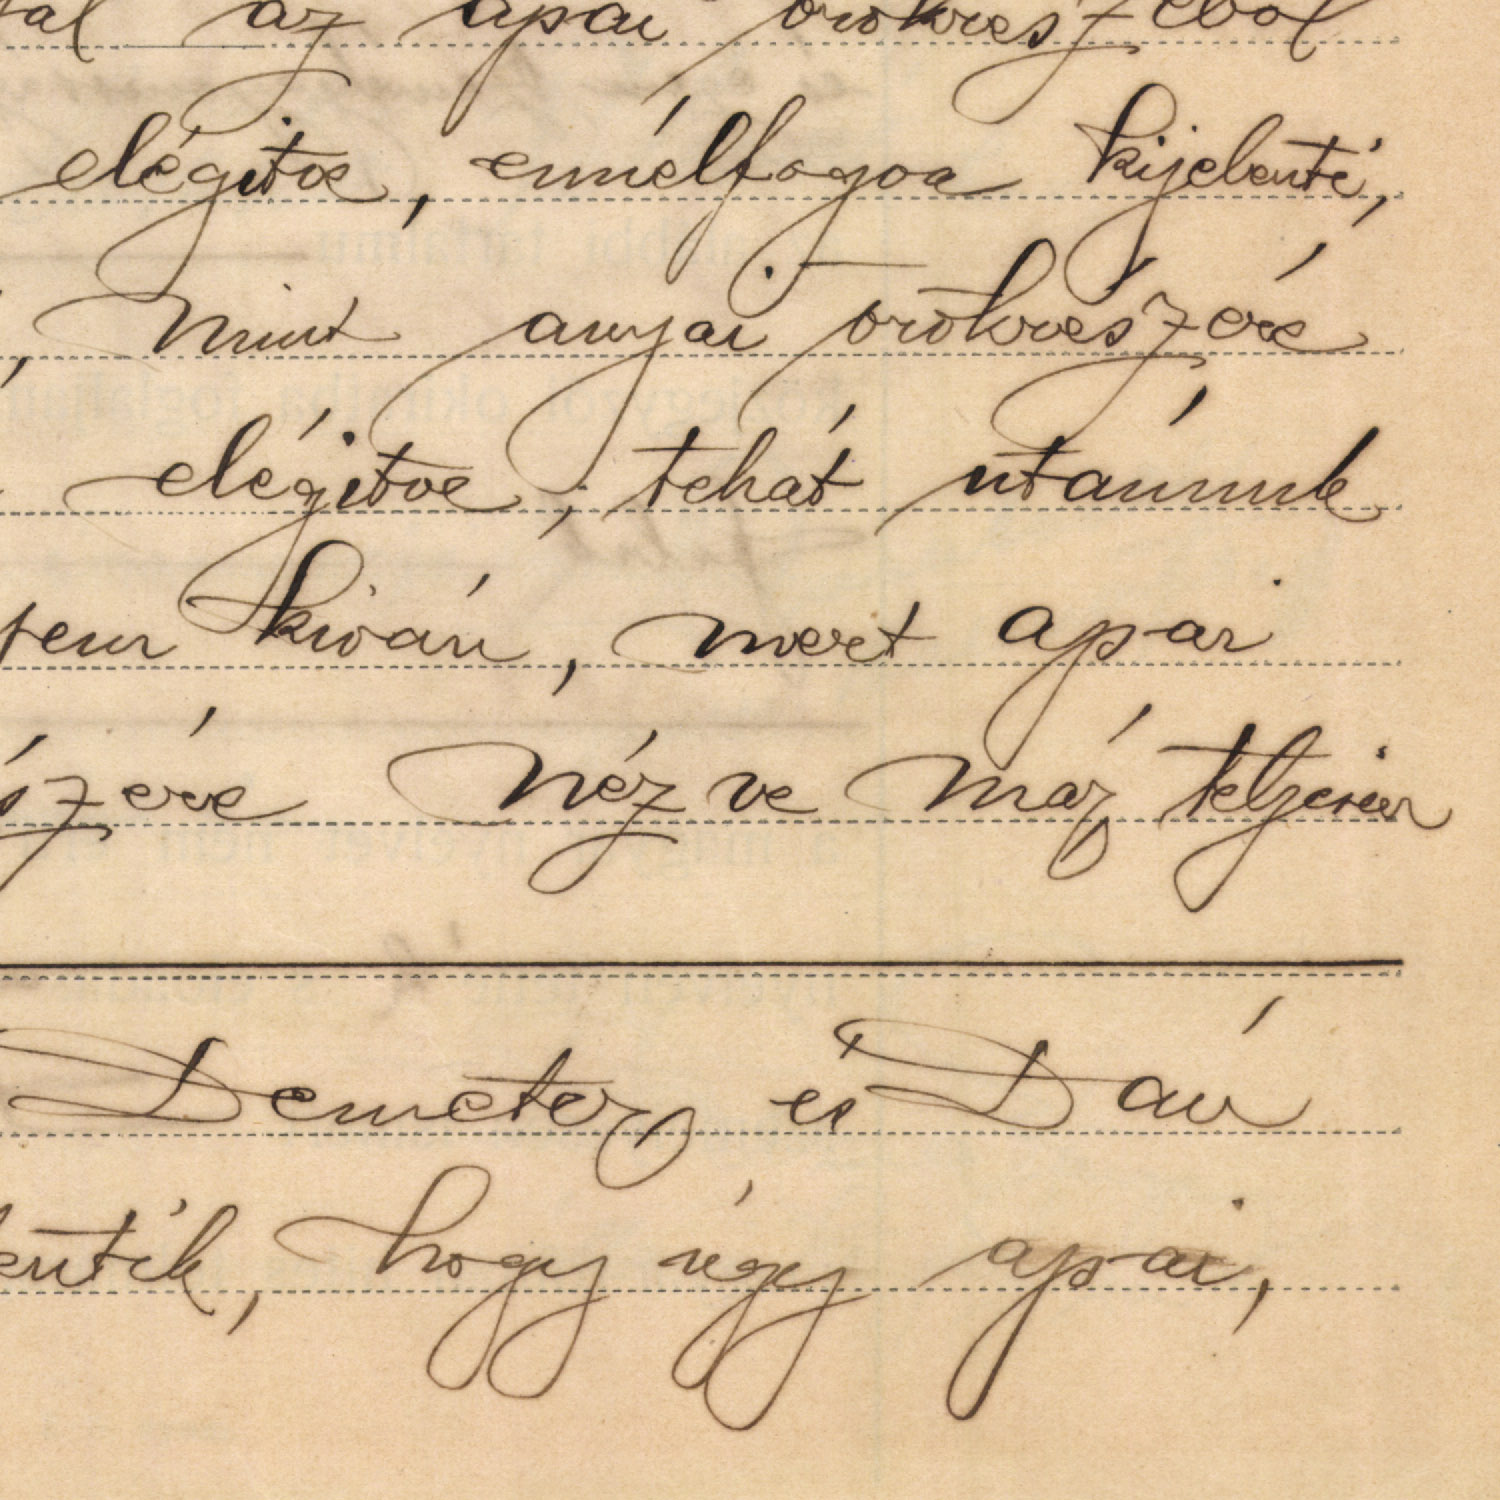 tal az apai örökrészéböl
elégitve, ennélfogva kijelenté,
, mint anyai örökrészére
elégitve, tehát utánunk
tem kiván, mert apai
szére nézve már teljesen
Demeter és Dáv
lentik, hogy úgy apai,